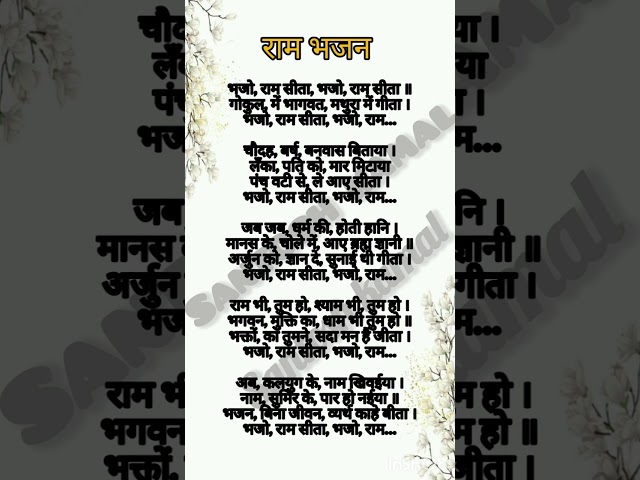 राम भजन
भजो, राम सीता, भजो, राम सीता ॥
गोकुल, में भागवत, मथुरा में गीता ।
भजो, राम सीता, भजो, राम...
चौदह, बर्ष, बनवास बिताया ।
लँका, पति को, मार मिटाया
पंच वटी से, ले आए सीता ।
भजो, राम सीता, भजो, राम...
जब जब, धर्म की, होती हानि ।
मानस के, चोले में, आए ब्रह्म ज्ञानी ॥
अर्जुन को, ज्ञान दे, सुनाई थी गीता ।
भजो, राम सीता, भजो, राम...
राम भी, तुम हो, श्याम भी, तुम हो ।
भगवन, मुक्ति का, धाम भी तुम हो ॥
भक्तों, का तुमने, सदा मन है जीता ।
भजो, राम सीता, भजो, राम...
अब, कलयुग के, नाम खिवईया ।
नाम, सुमिर के, पार हो नईया ॥
भजन, बिना जीवन, व्यर्थ काहे बीता ।
भजो, राम सीता, भजो, राम...